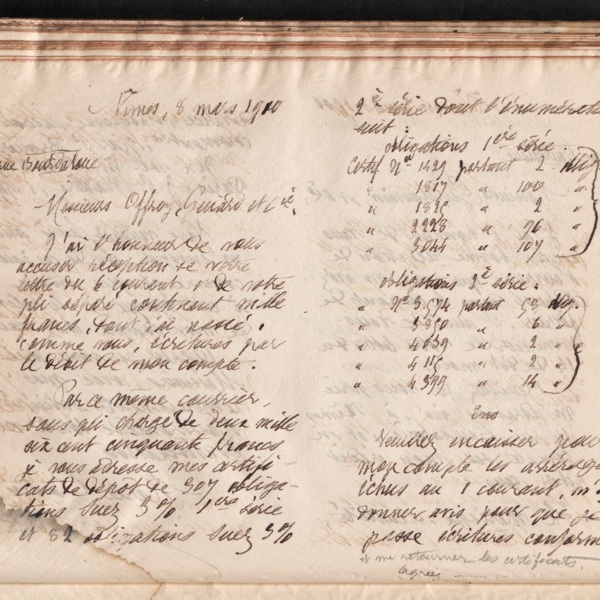 Nîmes, 8 mars 1910
rue Bourdaloue
Messieurs Offroy, Guiard et Cie.
J'ai l'honneur de vous
accuser réception de votre
lettre du 6 courant & de votre
pli séparé contenant mille
francs, dont j'ai passé,
comme vous, écritures par
le débit de mon compte.
Par ce même courrier,
sous pli chargé de deux mille
six cent cinquante francs
je vous adresse mes certifi-
cats de dépôt de 307 obliga-
tions Suez 3% 1ère série
et 82 obligations Suez 3%
2e série dont l'énumérati
suit :
obligations 1ère série.
Certif Nos 1429 portant 2 oblig
" 1817 " 100 "
" 1825 " 2 "
" 2228 " 96 "
" 3044 " 107 "
obligations 2e série :
" No 3574 portant 58 oblig.
" 3850 " 6 "
" 4039 " 2 "
" 4115 " 2 "
" 4399 " 14 "
Ens
Veuillez encaisser pour
mon compte les arrérages
échus au 1 courant, m'
donner avis pour que je
passe écritures conform
et me retourner les certificats.
Agréez